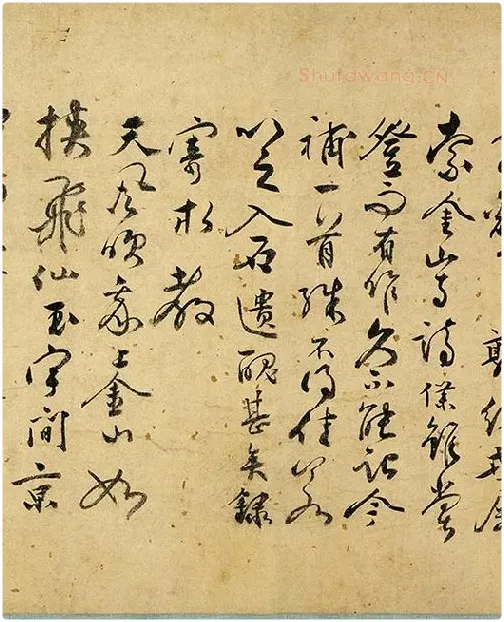 Shufawang.CN
索金山寺詩僕雖嘗
登而有作久不能記今
補一首殊不得佳若
以之入石遺醜甚矣錄
寄求教
天風吹我上金山如
挟飛仙玉宇間京